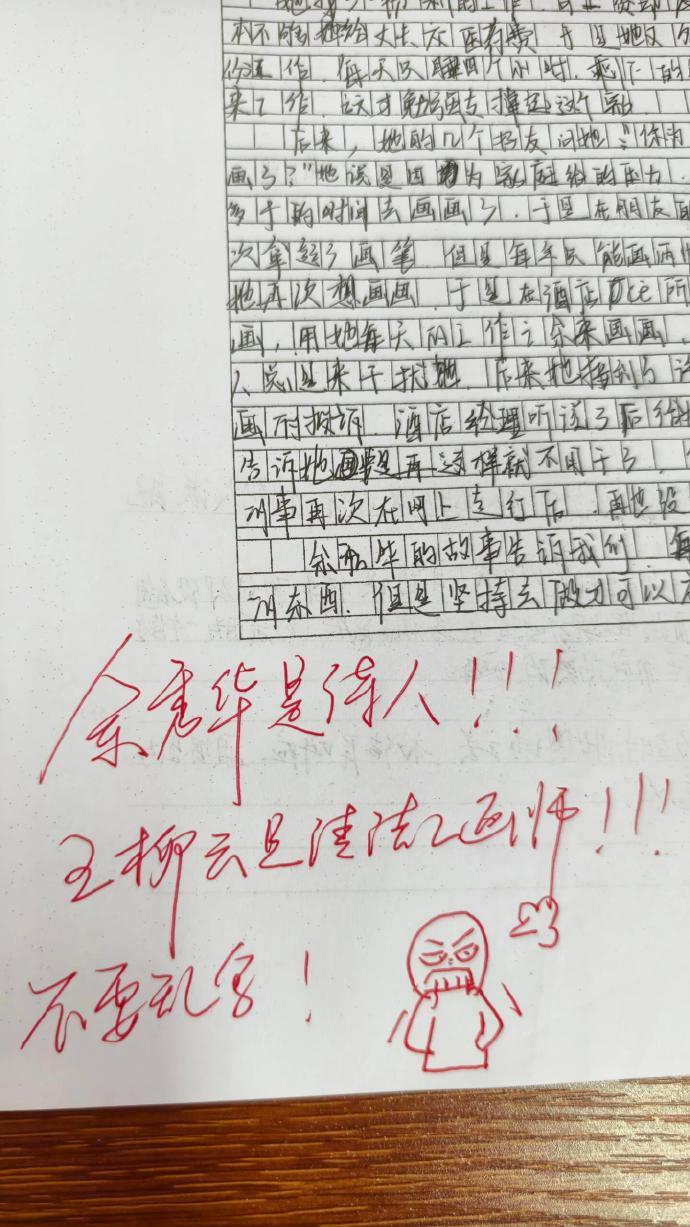 本不够她给丈夫
作.每天只睡四个小时.剩下的
来工作.这才勉强支撑起这个家.
后来,她的几个朋友问她:"你为
画了?"她说是因为家庭给的压力.
多于的时间去画画了.于是在朋友的
次拿起了画笔.但是每年只能画两
她再次想画画.于是在酒店 所
画,用她每天的工作之余来画画.
人总是来干扰她.后来她接到了
画所投诉.酒店经理听说了后给
告诉她要是再这样就不用干了.
事再次在网上走行后.再也没
余秀华的故事告诉我们.每
东西.但是坚持去做才可以
余秀华是诗人!!!
王柳云是清洁工画师!!!
不要乱写!